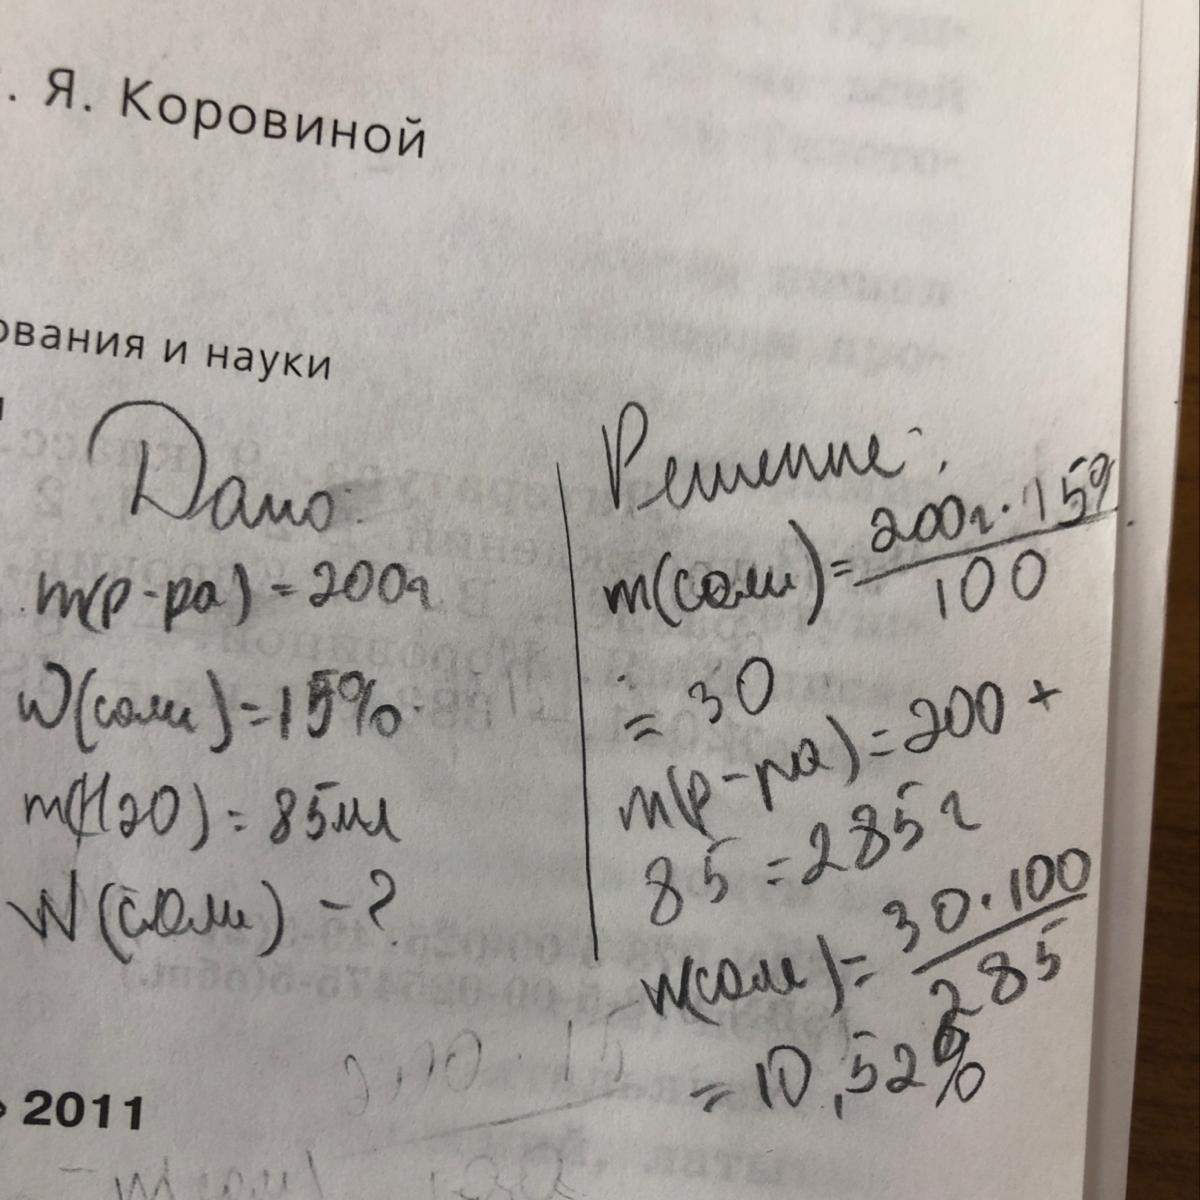 . Я. Коровиной
ования и науки
Дано:
m(р-ра) = 200г
W(соли) = 15%
m(H2O) = 85мл
W(соли) - ?
Решение:
m(соли) = 200г · 15%
100
= 30
m(р-ра) = 200 +
85 = 285 г
w(соли) = 30 · 100
285
= 10,52%
2011